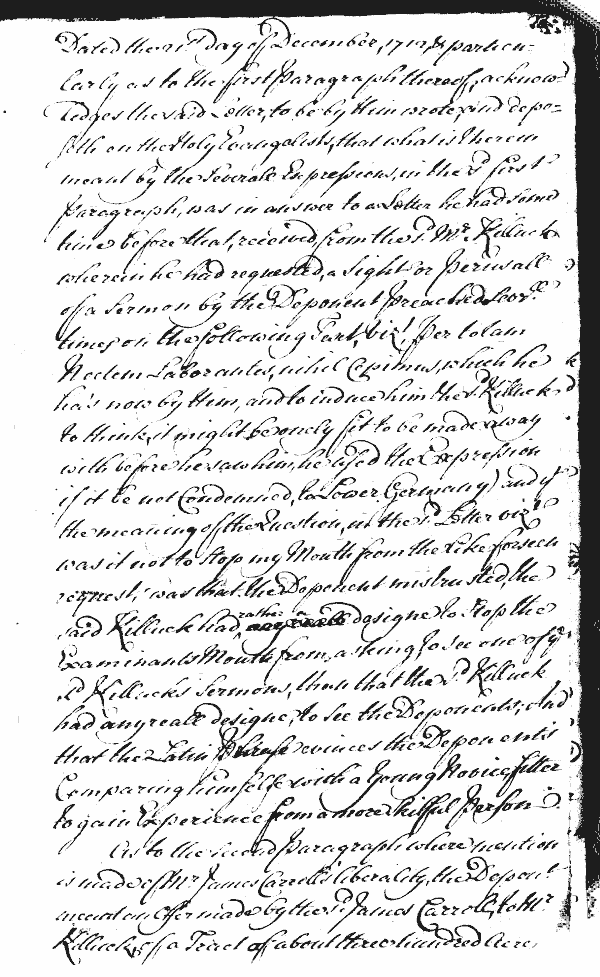 Dated the 21st day of December, 1713, & particu-
larly as to the first Paragraph thereof, acknow-
ledges the said Letter, to be by Him wrote, and depo-
seth on the Holy Evangelists, that what is therein
meant by the severall Expressions, in the sd first
Paragraph, was in answer to a Letter he had some
time before that, received from the sd Mr Killuck
wherein he had requested, a sight or Perusall
of a Sermon by the Deponent Preached sevrll
times on the following Text, vizt, Per totam
Noctem Laborantes, nihil Cepimus, which he
has now by Him, and to induce him the sd Killuck
to think, it might be onely fit to be made away
with before he saw him, he used the Expression
if it be not Condemned, to Lower Germany) and yt
the meaning of the Question, in the sd Letter vizt
was it not to stop my Mouth from the like forseen
request, was that, the Deponent mistrusted, the
said Killuck had, rather a designe to stop the
Examinants Mouth from, asking, to see one of ye
sd Killucks Sermons, than that the sd Killuck
had any reall designe, to see the Deponents, and
that the Latin Phrase evinces the Deponents
Comparing himselfe with a Young Novice fitter
to gain Experience from a more skilful Person.
As to the second Paragraph where mention
is made of Mr James Carroll's liberality, the Depont
meant an Offer made by the sd James Carroll, to Mr
Killuck, of a Tract of about three hundred Acres,